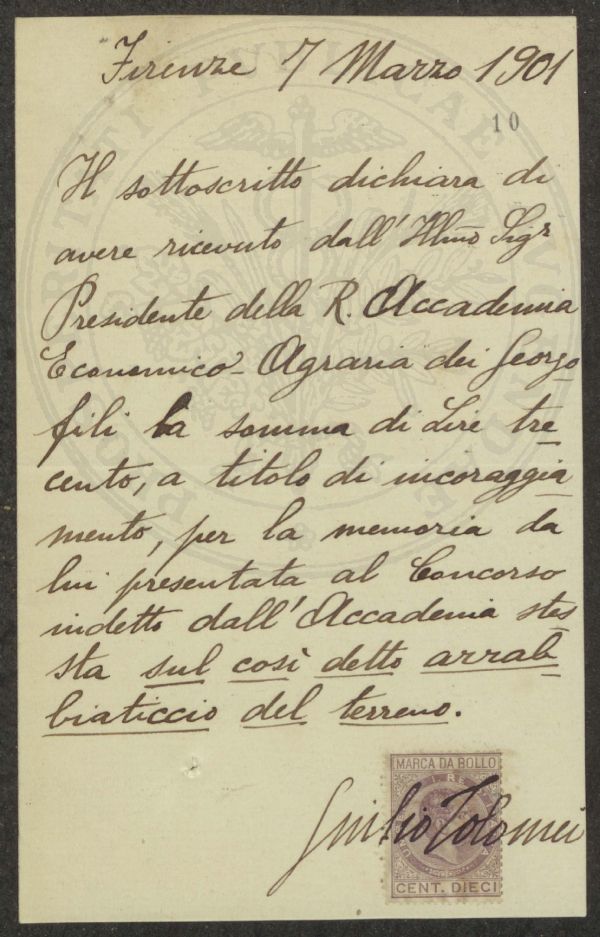 Firenze 7 Marzo 1901
10
Il sottoscritto dichiara di
avere ricevuto dall'Illmo Sigr
Presidente della R. Accademia
Economico-Agraria dei Georgo
fili la somma di Lire tre
cento, a titolo di incoraggia
mento, per la memoria da
lui presentata al Concorso
indetto dall'Accademia stes
sta sul così detto arrab
biaticcio del terreno.
MARCA DA BOLLO
Giulio Tolomei
CENT. DIECI